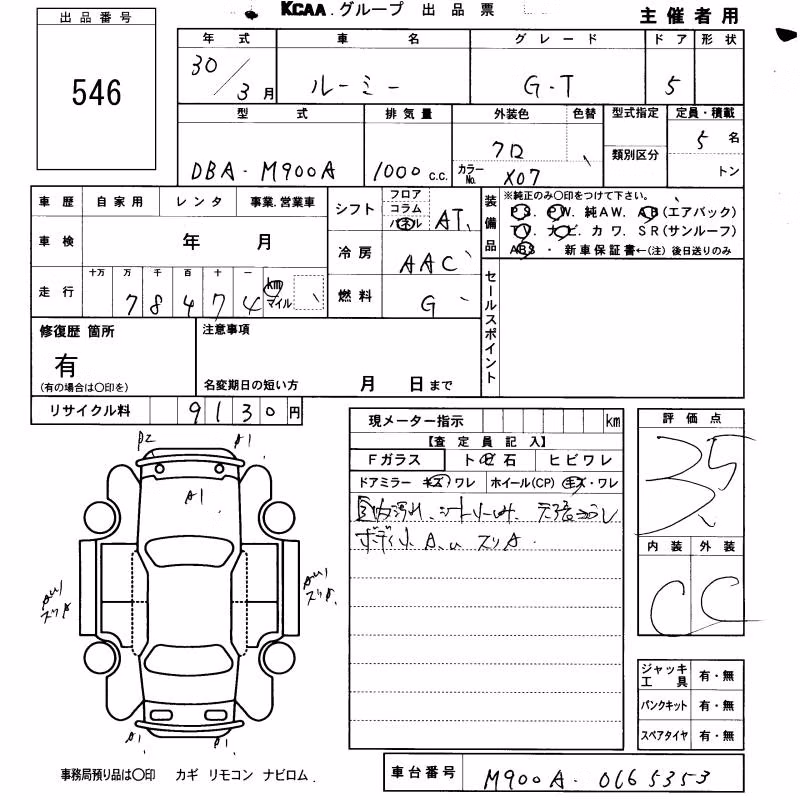 KCAA.グループ 出品票
主催者用
出品番号
546
年式 車名 グレード ドア 形状
30/3月 ルーミー G・T 5
型式 排気量 外装色 色替 型式指定 定員・積載
DBA-M900A 1000 c.c. クロ 5名
カラーNo. X07 類別区分 トン
車歴 自家用 レンタ 事業.営業車
車検 年 月
走行 十万 万 千 百 十 一
78474 km マイル
シフト フロア コラム パネル AT
冷房 AAC
燃料 G
装備品 ※純正のみ○印をつけて下さい。
PS. PW. 純AW. AB(エアバック)
TV. ナビ. カワ. SR(サンルーフ)
ABS ・ 新車保証書←(注) 後日送りのみ
セールスポイント
修復歴 箇所
有
(有の場合は○印を)
注意事項
名変期日の短い方 月 日まで
リサイクル料 9130円
現メーター指示 km
【査定員記入】
Fガラス トビ石 ヒビワレ
ドアミラー キズ・ワレ ホイール(CP) キズ・ワレ
ボディ小A.U スリA.
評価点
3.5
内装 外装
C C
P2 A1
A1
AU1 スリA
AU1 スリA.
A1 A1
ジャッキ工具 有・無
パンクキット 有・無
スペアタイヤ 有・無
事務局預り品は○印 カギ リモコン ナビロム.
車台番号 M900A-0165353